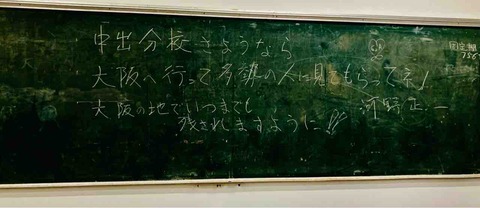 中出分校さようなら
大阪へ行って多勢の人に見てもらって来い
大阪の地でいつまでも
残されますように!! 河野正一